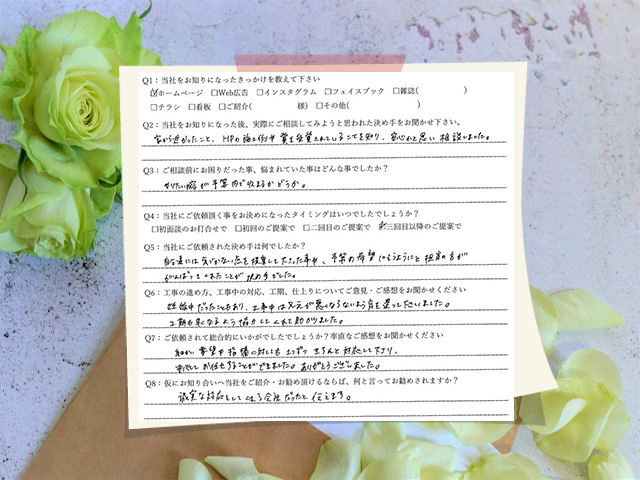 Q1：当社をお知りになったきっかけを教えて下さい
☑ホームページ □Web広告 □インスタグラム □フェイスブック □雑誌( )
□チラシ □看板 □ご紹介( 様) □その他( )
Q2：当社をお知りになった後、実際にご相談してみようと思われた決め手をお聞かせ下さい。
家から近かったこと、HPの施工例や賞を受賞されていることを知り、安心かと思い相談しました。
Q3：ご相談前にお困りだった事、悩まれていた事はどんな事でしたか？
やりたい事が予算内で収まるかどうか。
Q4：当社にご依頼頂く事をお決めになったタイミングはいつでしたでしょうか？
□初面談のお打合せで □初回のご提案で □二回目のご提案で ☑三回目以降のご提案で
Q5：当社にご依頼された決め手は何でしたか？
自分達には気づかない点を提案して下さった事や、予算の希望に
担当の方が
がんばってくれたことが決め手でした。
Q6：工事の進め方、工事中の対応、工期、仕上りについてご意見・ご感想をお聞かせください
妊娠中だったこともあり、工事中は足元が悪くならないよう気を遣って下さいました。
工期も
なるよう協力してくれて助かりました。
Q7：ご依頼されて総合的にいかがでしたでしょうか？率直なご感想をお聞かせください
細かい要望や指摘に対しても
きちんと対応して下さり、
安心してお任せすることができました。ありがとうございました。
Q8：仮にお知り合いへ当社をご紹介・お勧め頂けるならば、何と言ってお勧めされますか？
誠実な対応をしてくれる会社だったと伝えます。